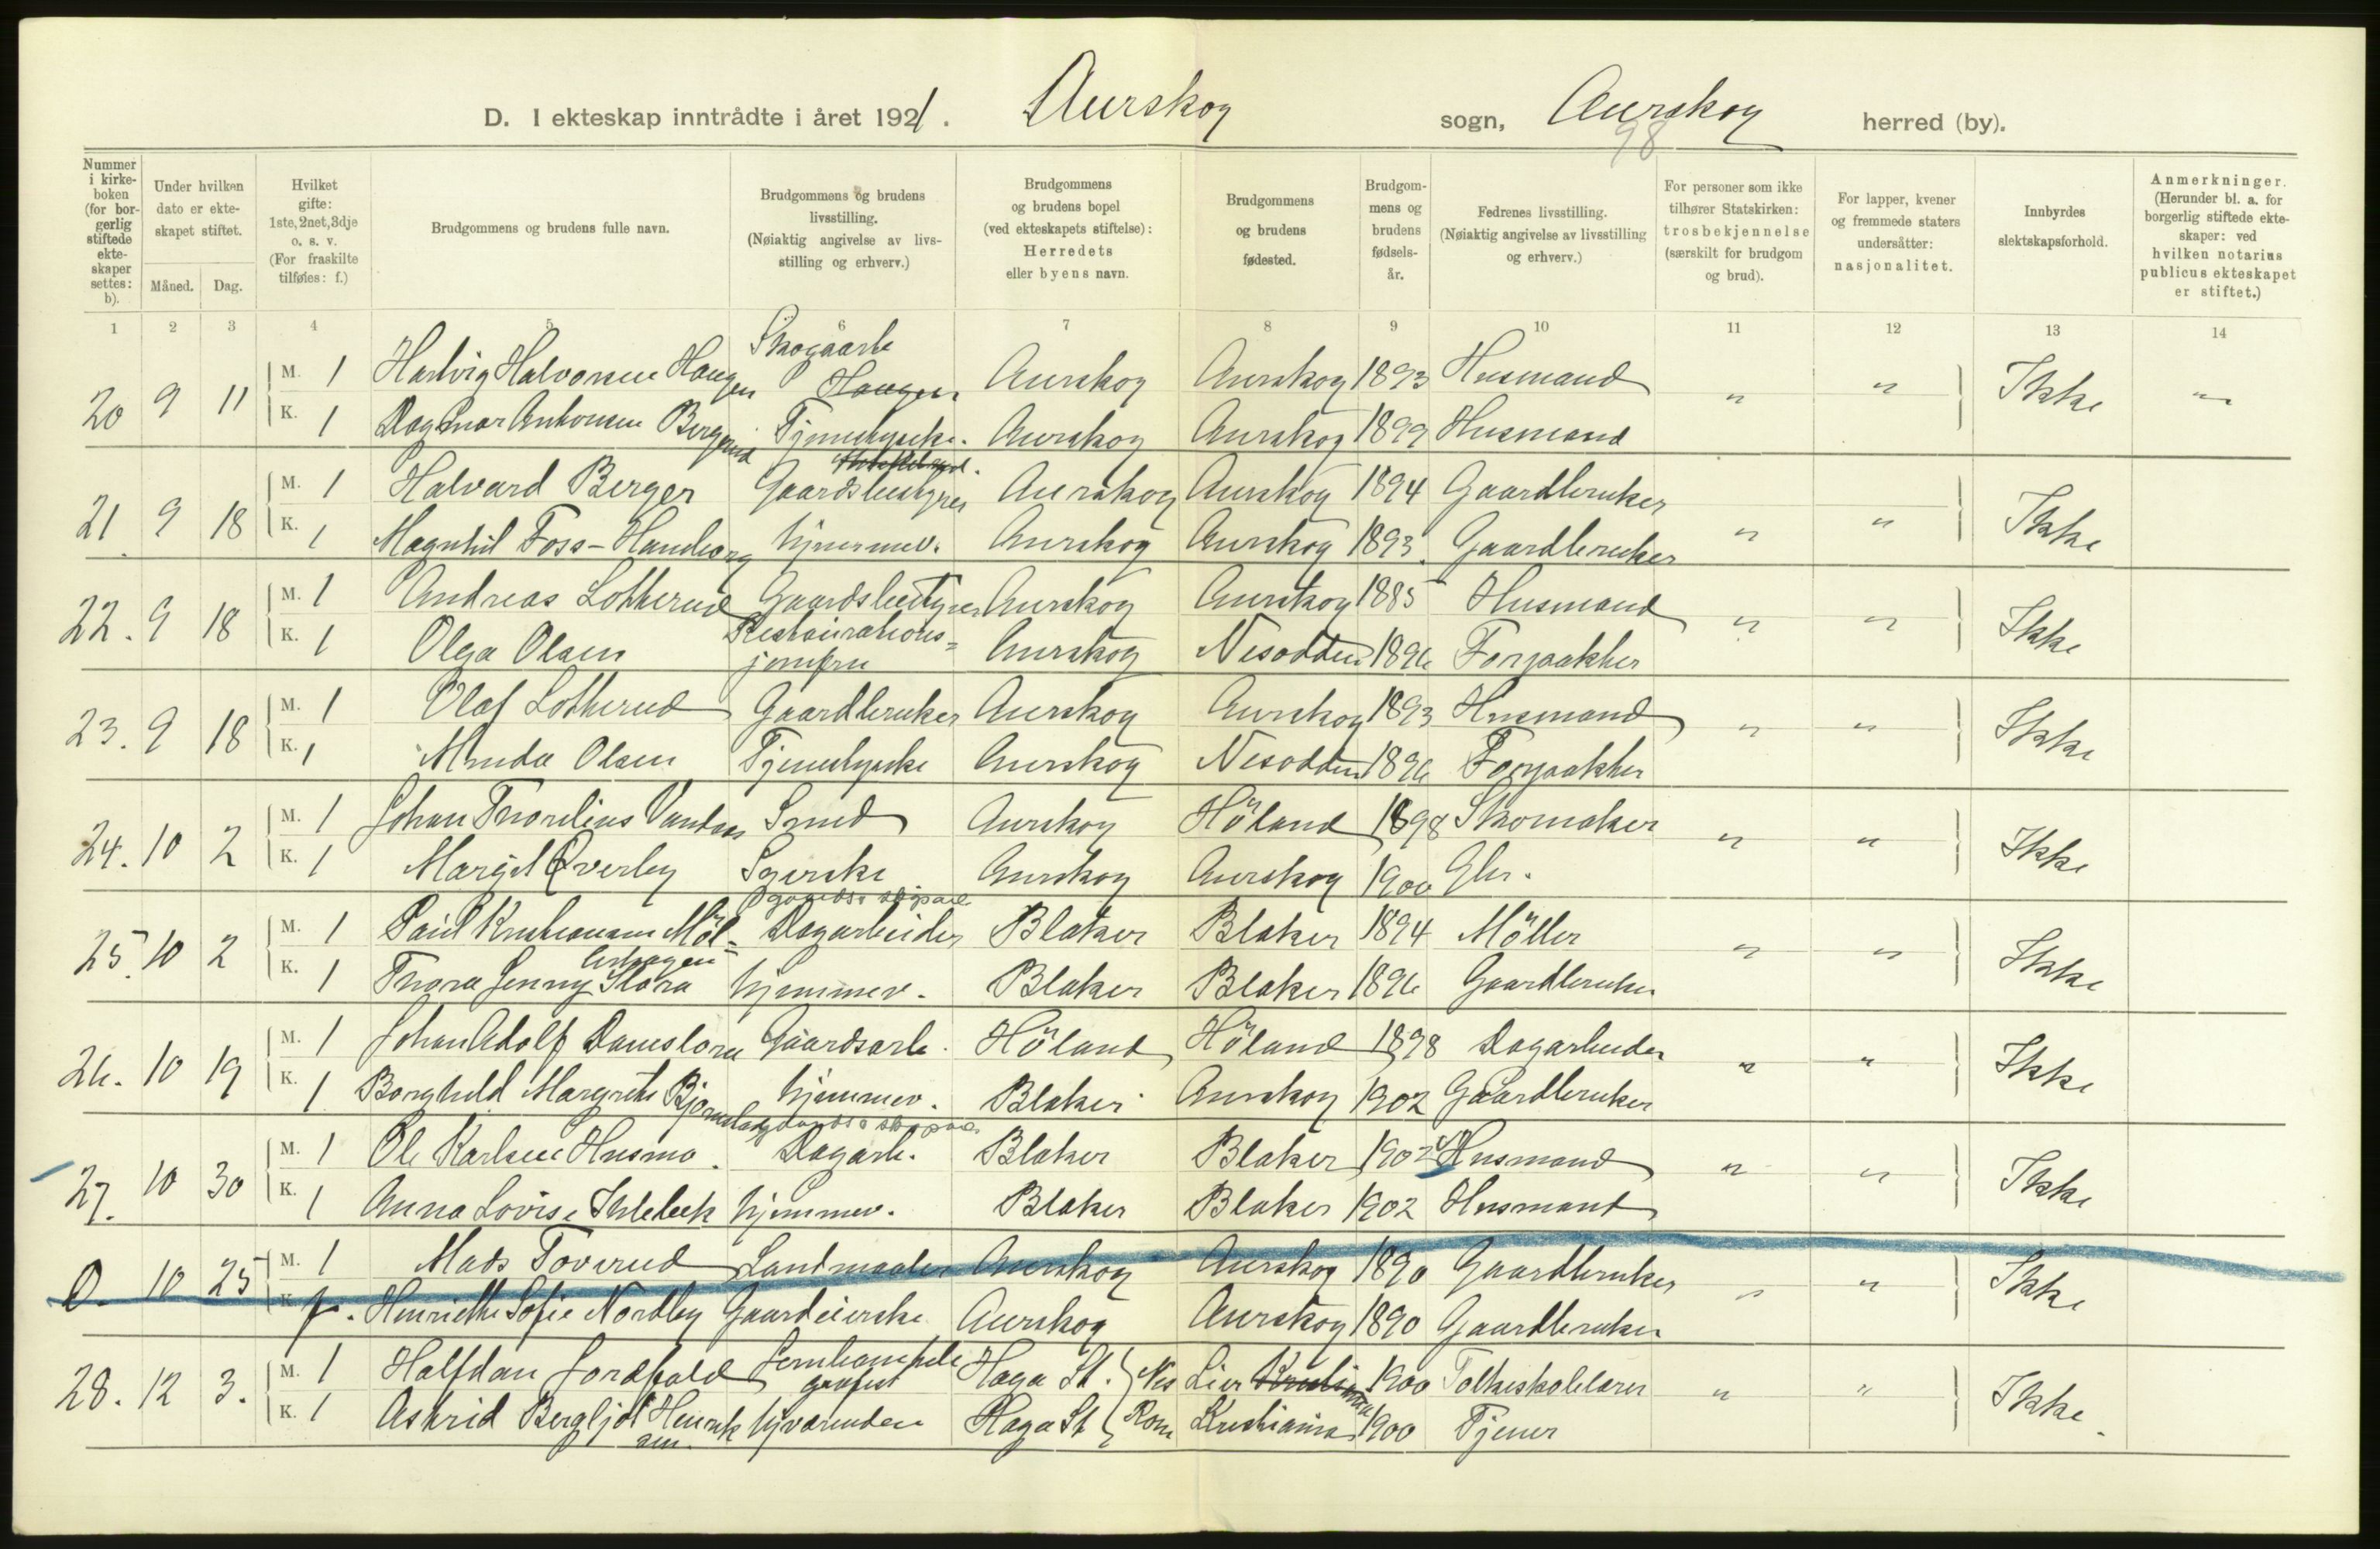 D. I ekteskap inntrådte i året 1921. Aurskog sogn, Aurskog herred (by).
98
Nummer i kirke-boken (for bor-gerlig stiftede ekte-skaper settes: b).
Under hvilken dato er ekte-skapet stiftet.
Måned. Dag.
Hvilket gifte: 1ste, 2net, 3dje o. s. v. (For fraskilte tilføies: f.)
Brudgommens og brudens fulle navn.
Brudgommens og brudens livsstilling. (Nøiaktig angivelse av livs-stilling og erhverv.)
Brudgommens og brudens bopel (ved ekteskapets stiftelse): Herredets eller byens navn.
Brudgommens og brudens fødested.
Brudgom-mens og brudens fødsels-år.
Fedrenes livsstilling. (Nøiaktig angivelse av livsstilling og erhverv.)
For personer som ikke tilhører Statskirken: trosbekjennelse (særskilt for brudgom og brud).
For lapper, kvener og fremmede staters undersåtter: nasjonalitet.
Innbyrdes slektskapsforhold.
Anmerkninger. (Herunder bl. a. for borgerlig stiftede ekte-skaper: ved hvilken notarius publicus ekteskapet er stiftet.)
1 2 3 4 5 6 7 8 9 10 11 12 13 14
Skogaarb
20 9 11 M. 1 Hartvig Halvorsen Haugen Haugen Aurskog Aurskog 1893 Husmand " " Ikke "
K. 1 Dagmar Antonsen Bergerud Tjenestepike. Aurskog Aurskog 1899 Husmand
21. 9 18 M. 1 Halvard Berger Gaardsbestyrer Aurskog Aurskog 1894 Gaardbruker " " Ikke
K. 1 Magnhil Foss-Haneborg hjemmev. Aurskog Aurskog 1893. Gaardbruker
22. 9 18 M. 1 Andreas Lotterud Gaardsbestyrer Aurskog Aurskog 1885 Husmand " " Ikke
K. 1 Olga Olsen Restaurations=jomfru Aurskog Nesodden 1896 Forpakter
23. 9 18 M. 1 Olaf Lotterud Gaardbruker Aurskog Aurskog 1893 Husmand " " Ikke
K. 1 Minda Olsen Tjenestepike Aurskog Nesodden 1896 Forpakter
24. 10 2 M. 1 Johan Thorelius Smed Aurskog Höland 1898 Skomaker " " Ikke
K. 1 Margit Överby Syerske Aurskog Aurskog 1900 Gbr.
gaards &
25. 10 2 M. 1 Paul Kristiansen Möl= Dagarbeider Blaker Blaker 1894 Möller " " Ikke
K. 1 Thora Jenny Stora hjemmev. Blaker Blaker 1896 Gaardbruker
26. 10 19 M. 1 Johan Adolf Gaardsarb. Höland Höland 1898 Dagarbeider " " Ikke
K. 1 Borghild Margrethe hjemmev. Blaker Aurskog 1902 Gaardbruker
27. 10 30 M. 1 Ole Karlsen Husmo. Dagarb. Blaker Blaker 1902 Husmand " " Ikke
K. 1 Anna Lovise hjemmev. Blaker Blaker 1902 Husmand
0. 10 25 M. 1 Mads Toverud Landmaaler Aurskog Aurskog 1890 Gaardbruker " " Ikke
K. f. Henriette Sofie Nordby Gaardeierske Aurskog Aurskog 1890 Gaardbruker
28. 12 3. M. 1 Halfdan Jordfald Jernbanetele grafist Haga St. Nes Lier 1900 Folkeskolelærer " " Ikke.
K. 1 Astrid Bergljot Henriksen hjværende Haga St Rom Kristiania 1900 Tjener